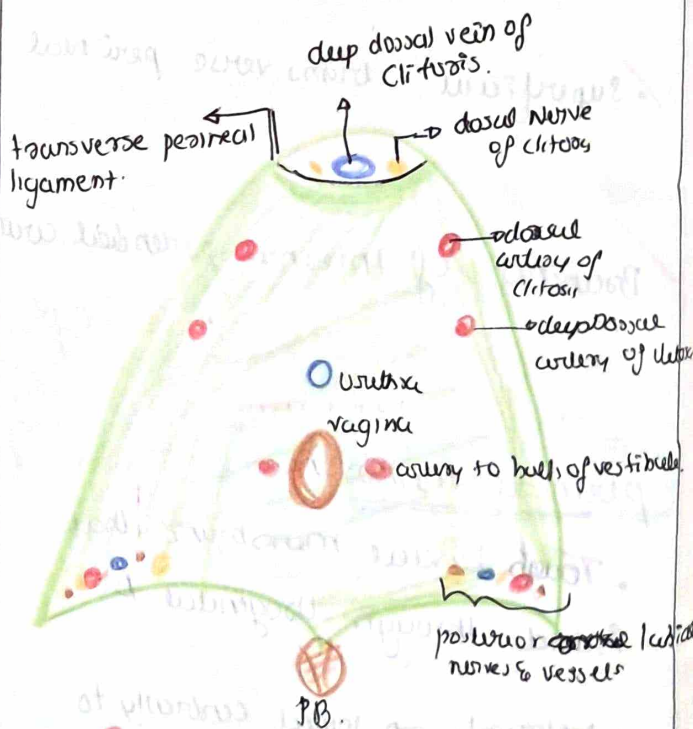 deep dorsal vein of
Clitoris.
transverse perineal
ligament.
dosal Nerve
of clitoris
dorsal
artery of
Clitoris
deep Dorsal
artery of
Urethra
vagina
artery to bulb of vestibule.
posterior labial
nerves & vessels
PB.